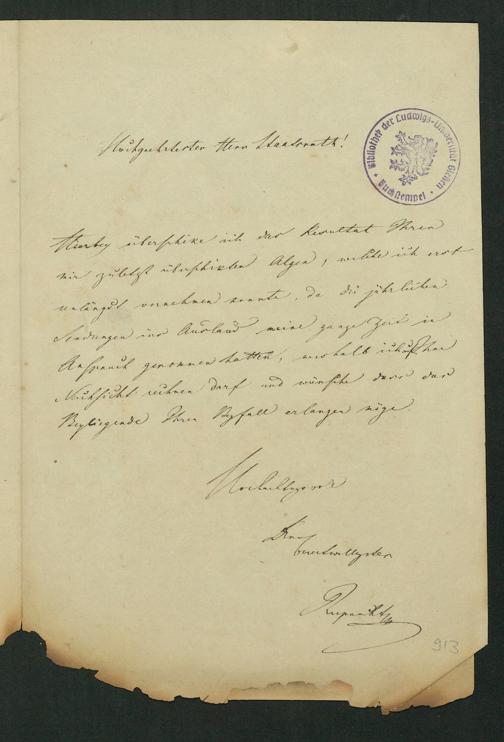 Hochgeehrtester Herr Staatsrath!
Bibliothek der Ludwigs-Universität Gießen
Buchstempel
Hierbey überschicke ich das Resultat Ihrer
mir zuletzt überschickten Algen, welche ich erst
unlängst vornehmen konnte, da die jährlichen
Sendungen ins Ausland meine ganze Zeit in
Anspruch genommen hatten, weshalb ich auf Ihre
Nachsicht rechnen darf und wünsche dass das
Beyliegende Ihren Beyfall erlangen möge.
Hochachtungsvoll
Ihr
bereitwilligster
Ruprecht
913